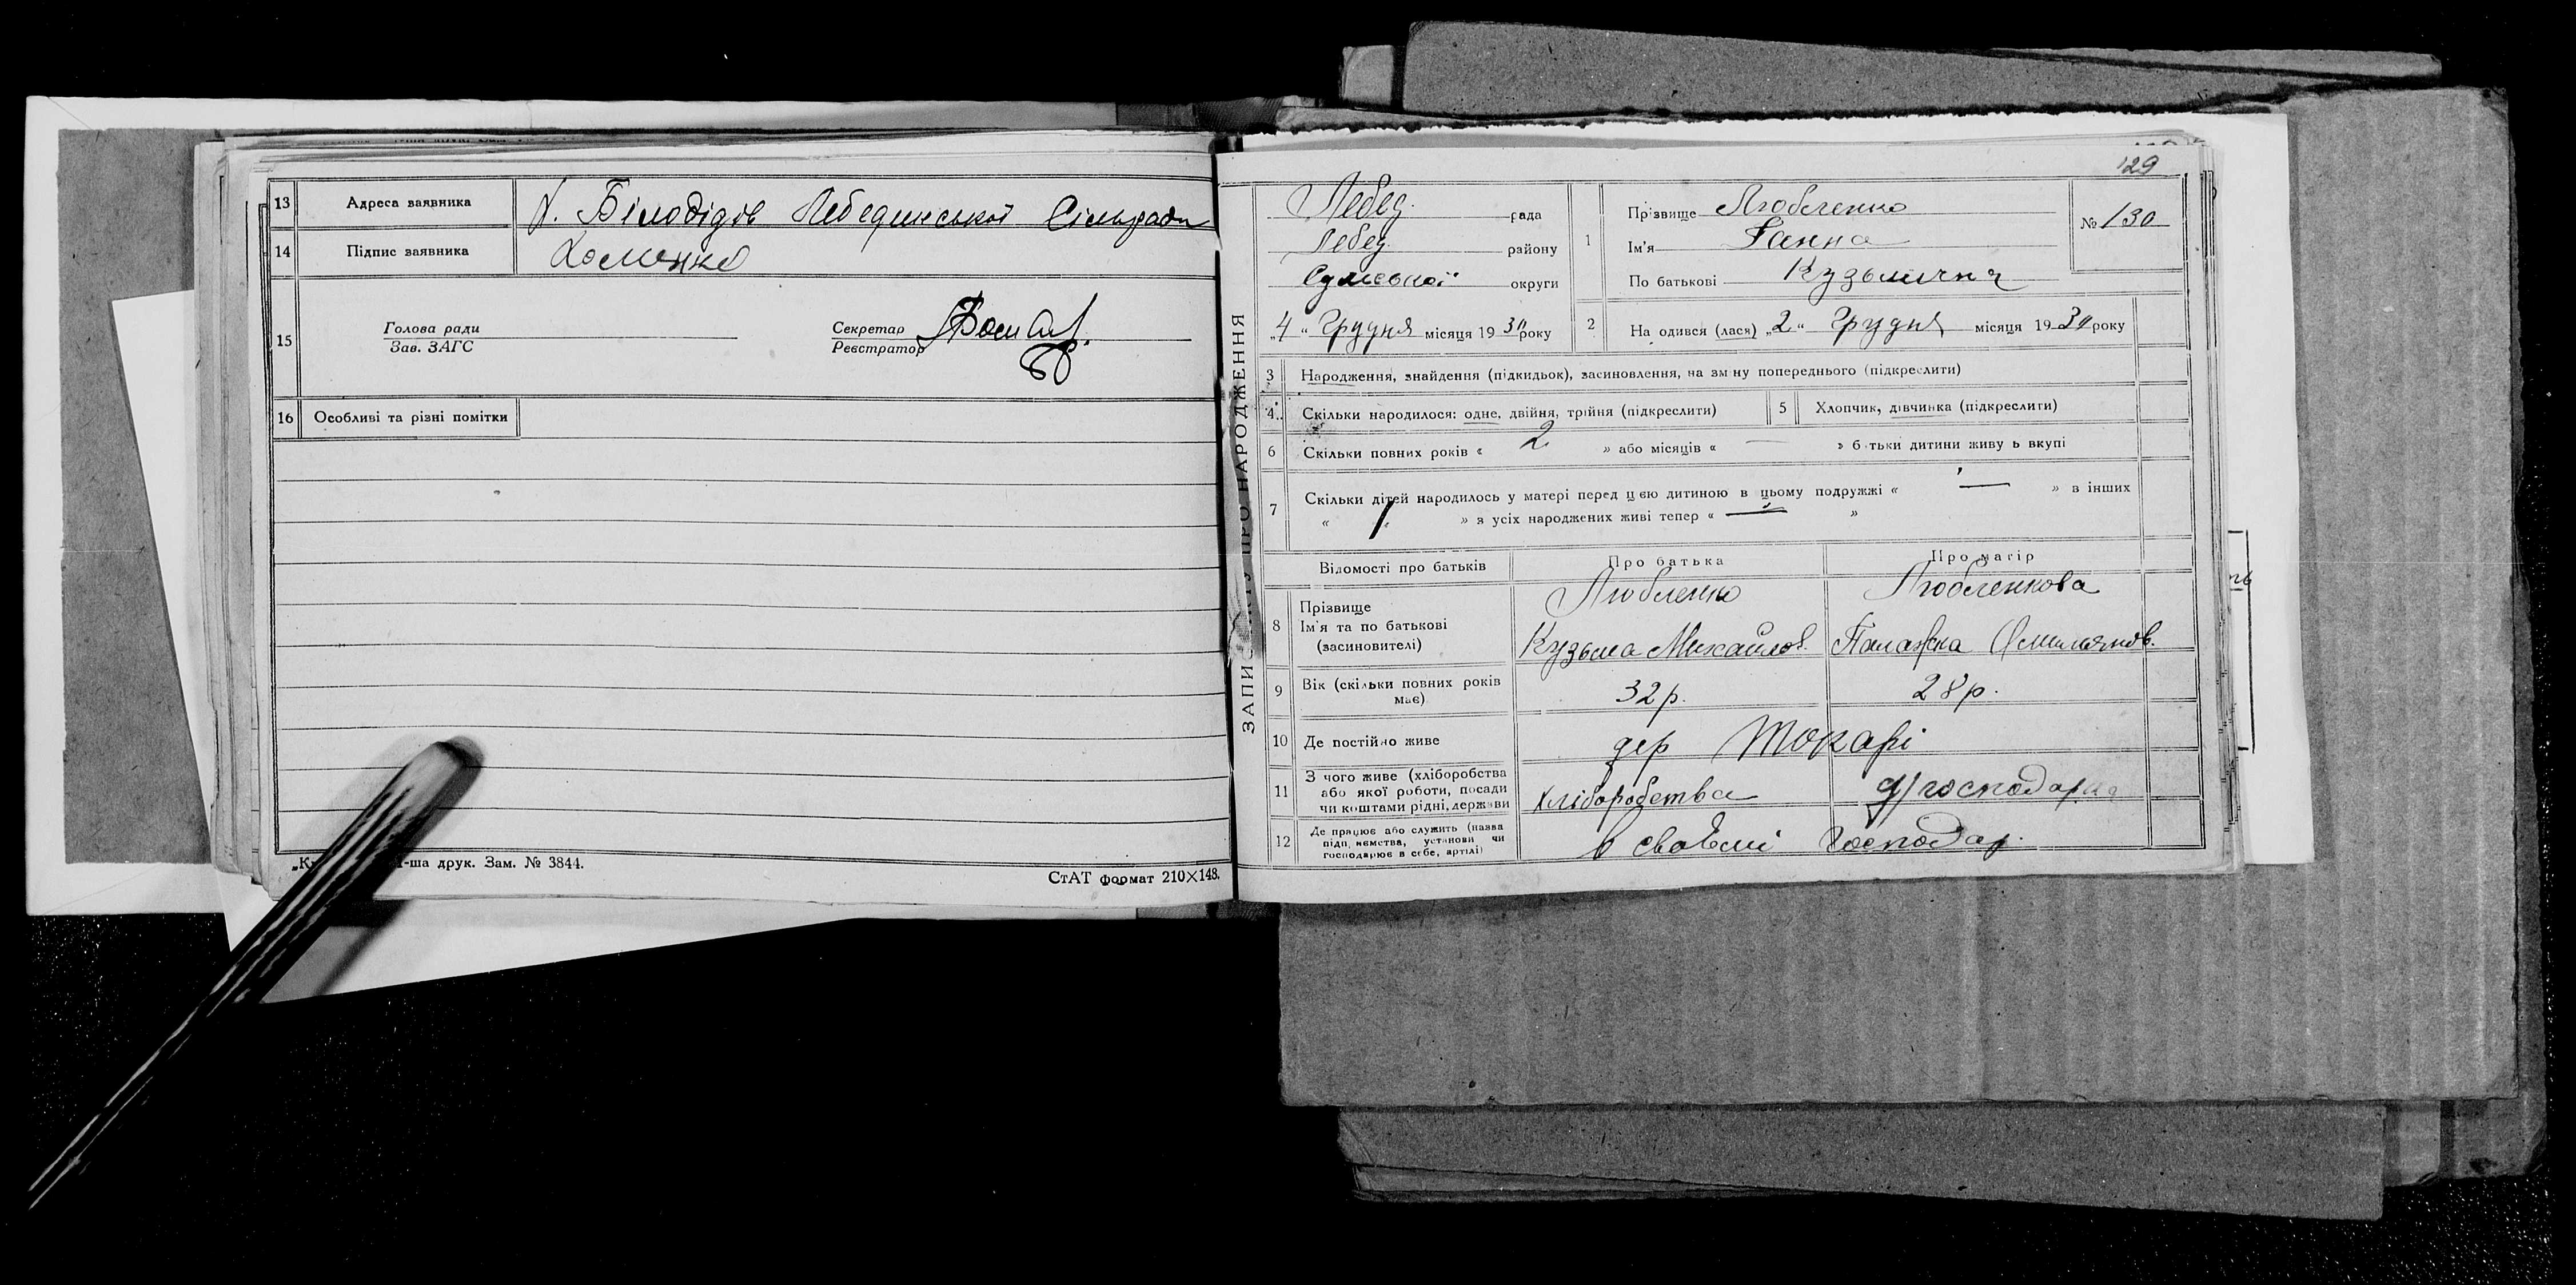 13 Адреса заявника х. Білодідів Лебединської Сільради
14 Підпис заявника Хоменко
15 Голова ради
Зав. ЗАГС
Секретар
Реєстратор
16 Особливі та різні помітки
1-ша друк. Зам. № 3844.
СтАТ формат 210×148.
129
ЗАПИС АКТУ ПРО НАРОДЖЕННЯ
Лебед. рада
Лебед. району
Сумської округи
„4“ Грудня місяця 1930 року
1 Прізвище Любленко
Ім'я Ганна
По батькові Кузьмична
№ 130
2 На одився (лася) „2“ Грудня місяця 1930 року
3 Народження, знайдення (підкидьок), засиновлення, на зміну попереднього (підкреслити)
4. Скільки народилося: одне, двійня, трійня (підкреслити) 5 Хлопчик, дівчинка (підкреслити)
6 Скільки повних років « 2 » або місяців « — » батьки дитини живуть вкупі
7 Скільки дітей народилось у матері перед цією дитиною в цьому подружжі « — » в інших
« » з усіх народжених живі тепер « — »
Відомості про батьків Про батька Про матір
8 Прізвище Любленко Любленкова
Ім'я та по батькові
(засиновителі) Кузьма Михайлов. Палажка
9 Вік (скільки повних років має) 32 р. 28 р.
10 Де постійно живе дер Токарі
11 З чого живе (хліборобства
або якої роботи, посади
чи коштами рідні, держави
хліборобства д/господарка
12 Де працює або служить (назва
підприємства, установи чи
господарює в себе, артілі)
в своємі господар.